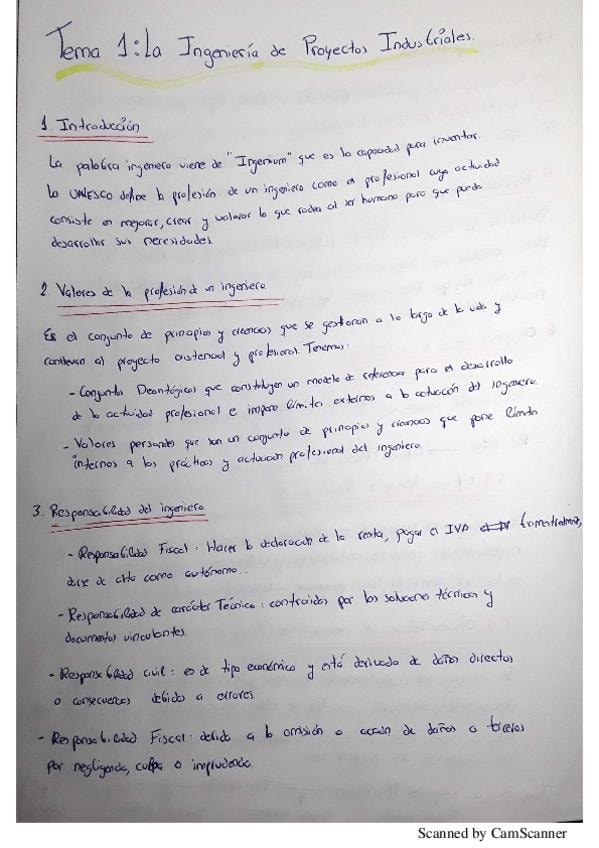 Tema 1: La Ingeniería de Proyectos Industriales.
1. Introducción
La palabra ingeniero viene de "Ingenium" que es la capacidad para inventar.
La UNESCO define la profesión de un ingeniero como el profesional cuya actividad
consiste en mejorar, crear y valorar lo que rodea al ser humano para que pueda
desarrollar sus necesidades.
2. Valores de la profesión de un ingeniero.
Es el conjunto de principios y creencias que se gestionan a lo largo de la vida y
conllevan al proyecto existencial y profesional. Tenemos:
- Conjuntos Deontológicos que constituyen un modelo de referencia para el desarrollo
de la actividad profesional e impone límites externos a la actuación del ingeniero.
- Valores personales que son un conjunto de principios y creencias que pone límites
internos a las prácticas y actuación profesional del ingeniero.
3. Responsabilidad del ingeniero
- Responsabilidad Fiscal: Hacer la declaración de la renta, pagar el IVA trimestralmente,
darse de alta como autónomo...
- Responsabilidad de carácter Técnico: contraidas por las soluciones técnicas y
documentos vinculantes.
- Responsabilidad civil: es de tipo económico y está derivada de daños directos
o consecuencias debidos a errores.
- Responsabilidad Fiscal: debido a la omisión o acción de daños a terceros
por negligencia, culpa o imprudencia.
Scanned by CamScanner